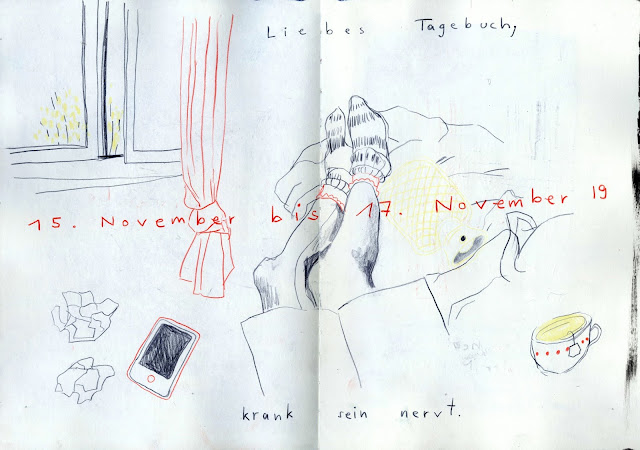 Liebes Tagebuch,
15. November bis 17. November 19
krank sein nervt.